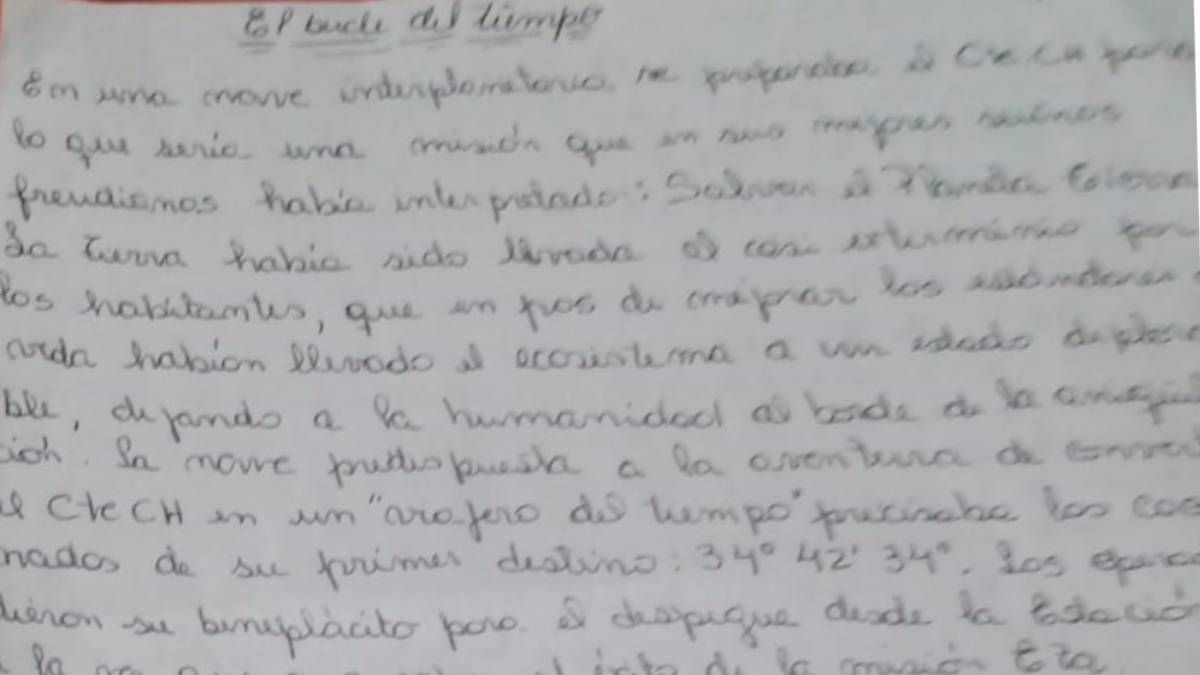 El bucle del tiempo
En una nave interplanetaria se preparaba el CteCH para
lo que sería una misión que en sus mejores sueños
freudianos había interpretado: Salvar el Planeta
La Tierra había sido llevada al casi exterminio por
los habitantes, que en pos de mejorar los estándares
vida habían llevado el ecosistema a un estado deplora
ble, dejando a la humanidad al borde de la aniquil
ción. La nave predispuesta a la aventura de
el CteCH en un "viajero del tiempo" precisaba las coo
nadas de su primer destino: 34° 42' 34°. Los
dieron su beneplácito para el despegue desde la Estació
la de la misión Era